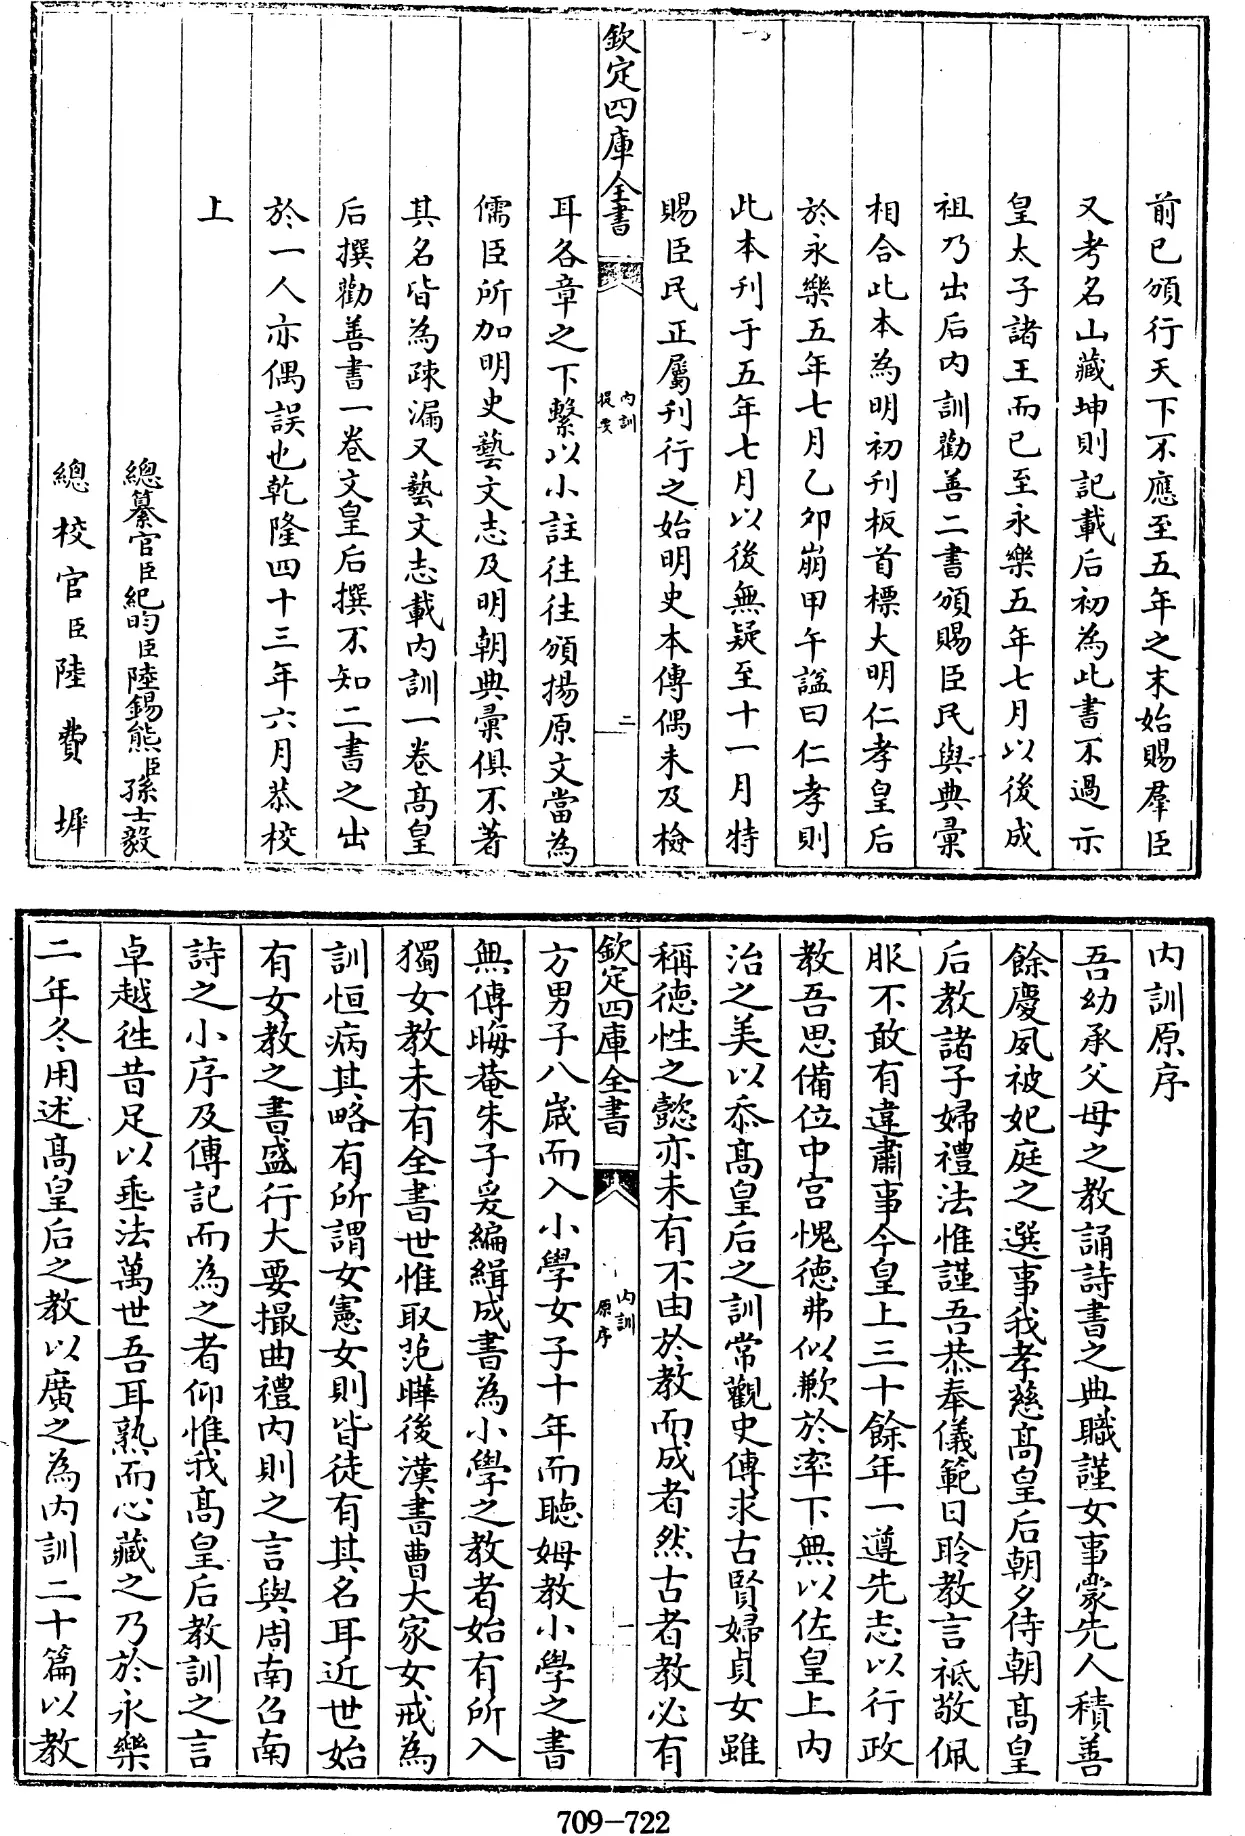 前已頒行天下不應至五年之末始賜羣臣
又考名山藏坤則記載后初為此書不過示
皇太子諸王而已至永樂五年七月以後成
祖乃出后内訓勸善二書頒賜臣民與典彚
相合此本為明初刊板首標大明仁孝皇后
於永樂五年七月乙卯崩甲午諡曰仁孝則
此本刊于五年七月以後無疑至十一月特
賜臣民正屬刊行之始明史本傳偶未及檢
欽定四庫全書
内訓
提要
二
耳各章之下繫以小註往往頒揚原文當為
儒臣所加明史藝文志及明朝典彚俱不著
其名皆為疎漏又藝文志載内訓一卷高皇
后撰勸善書一卷文皇后撰不知二書之出
於一人亦偶誤也乾隆四十三年六月恭校
上
總纂官臣紀昀臣陸錫熊臣孫士毅
總校官臣陸費墀
内訓原序
吾幼承父母之教誦詩書之典職謹女事蒙先人積善
餘慶夙被妃庭之選事我孝慈高皇后朝夕侍朝高皇
后教諸子婦禮法惟謹吾恭奉儀範日聆教言祗敬佩
服不敢有違肅事今皇上三十餘年一遵先志以行政
教吾思備位中宫愧德弗似歉於率下無以佐皇上内
治之美以忝高皇后之訓常觀史傳求古賢婦貞女雖
稱德性之懿亦未有不由於教而成者然古者教必有
欽定四庫全書
内訓
原序
一
方男子八歲而入小學女子十年而聽姆教小學之書
無傳晦菴朱子爰編緝成書為小學之教者始有所入
獨女教未有全書世惟取范曄後漢書曹大家女戒為
訓恒病其略有所謂女憲女則皆徒有其名耳近世始
有女教之書盛行大要撮曲禮内則之言與周南召南
詩之小序及傳記而為之者仰惟我高皇后教訓之言
卓越徃昔足以垂法萬世吾耳熟而心藏之乃於永樂
二年冬用述高皇后之教以廣之為内訓二十篇以教
709-722